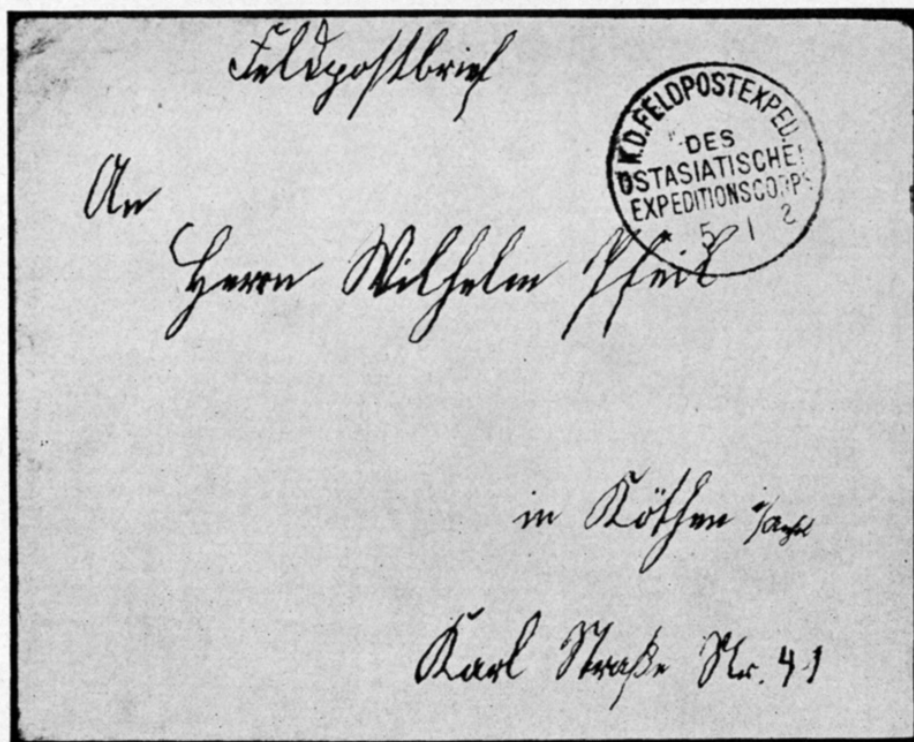 Feldpostbrief
K.D.FELDPOSTEXPED.
DES
OSTASIATISCHEN
EXPEDITIONSCORPS
5 1 2
An
Herrn Wilhelm Pfeil
in Köthen i/Anhl
Karl Straße Nr. 41